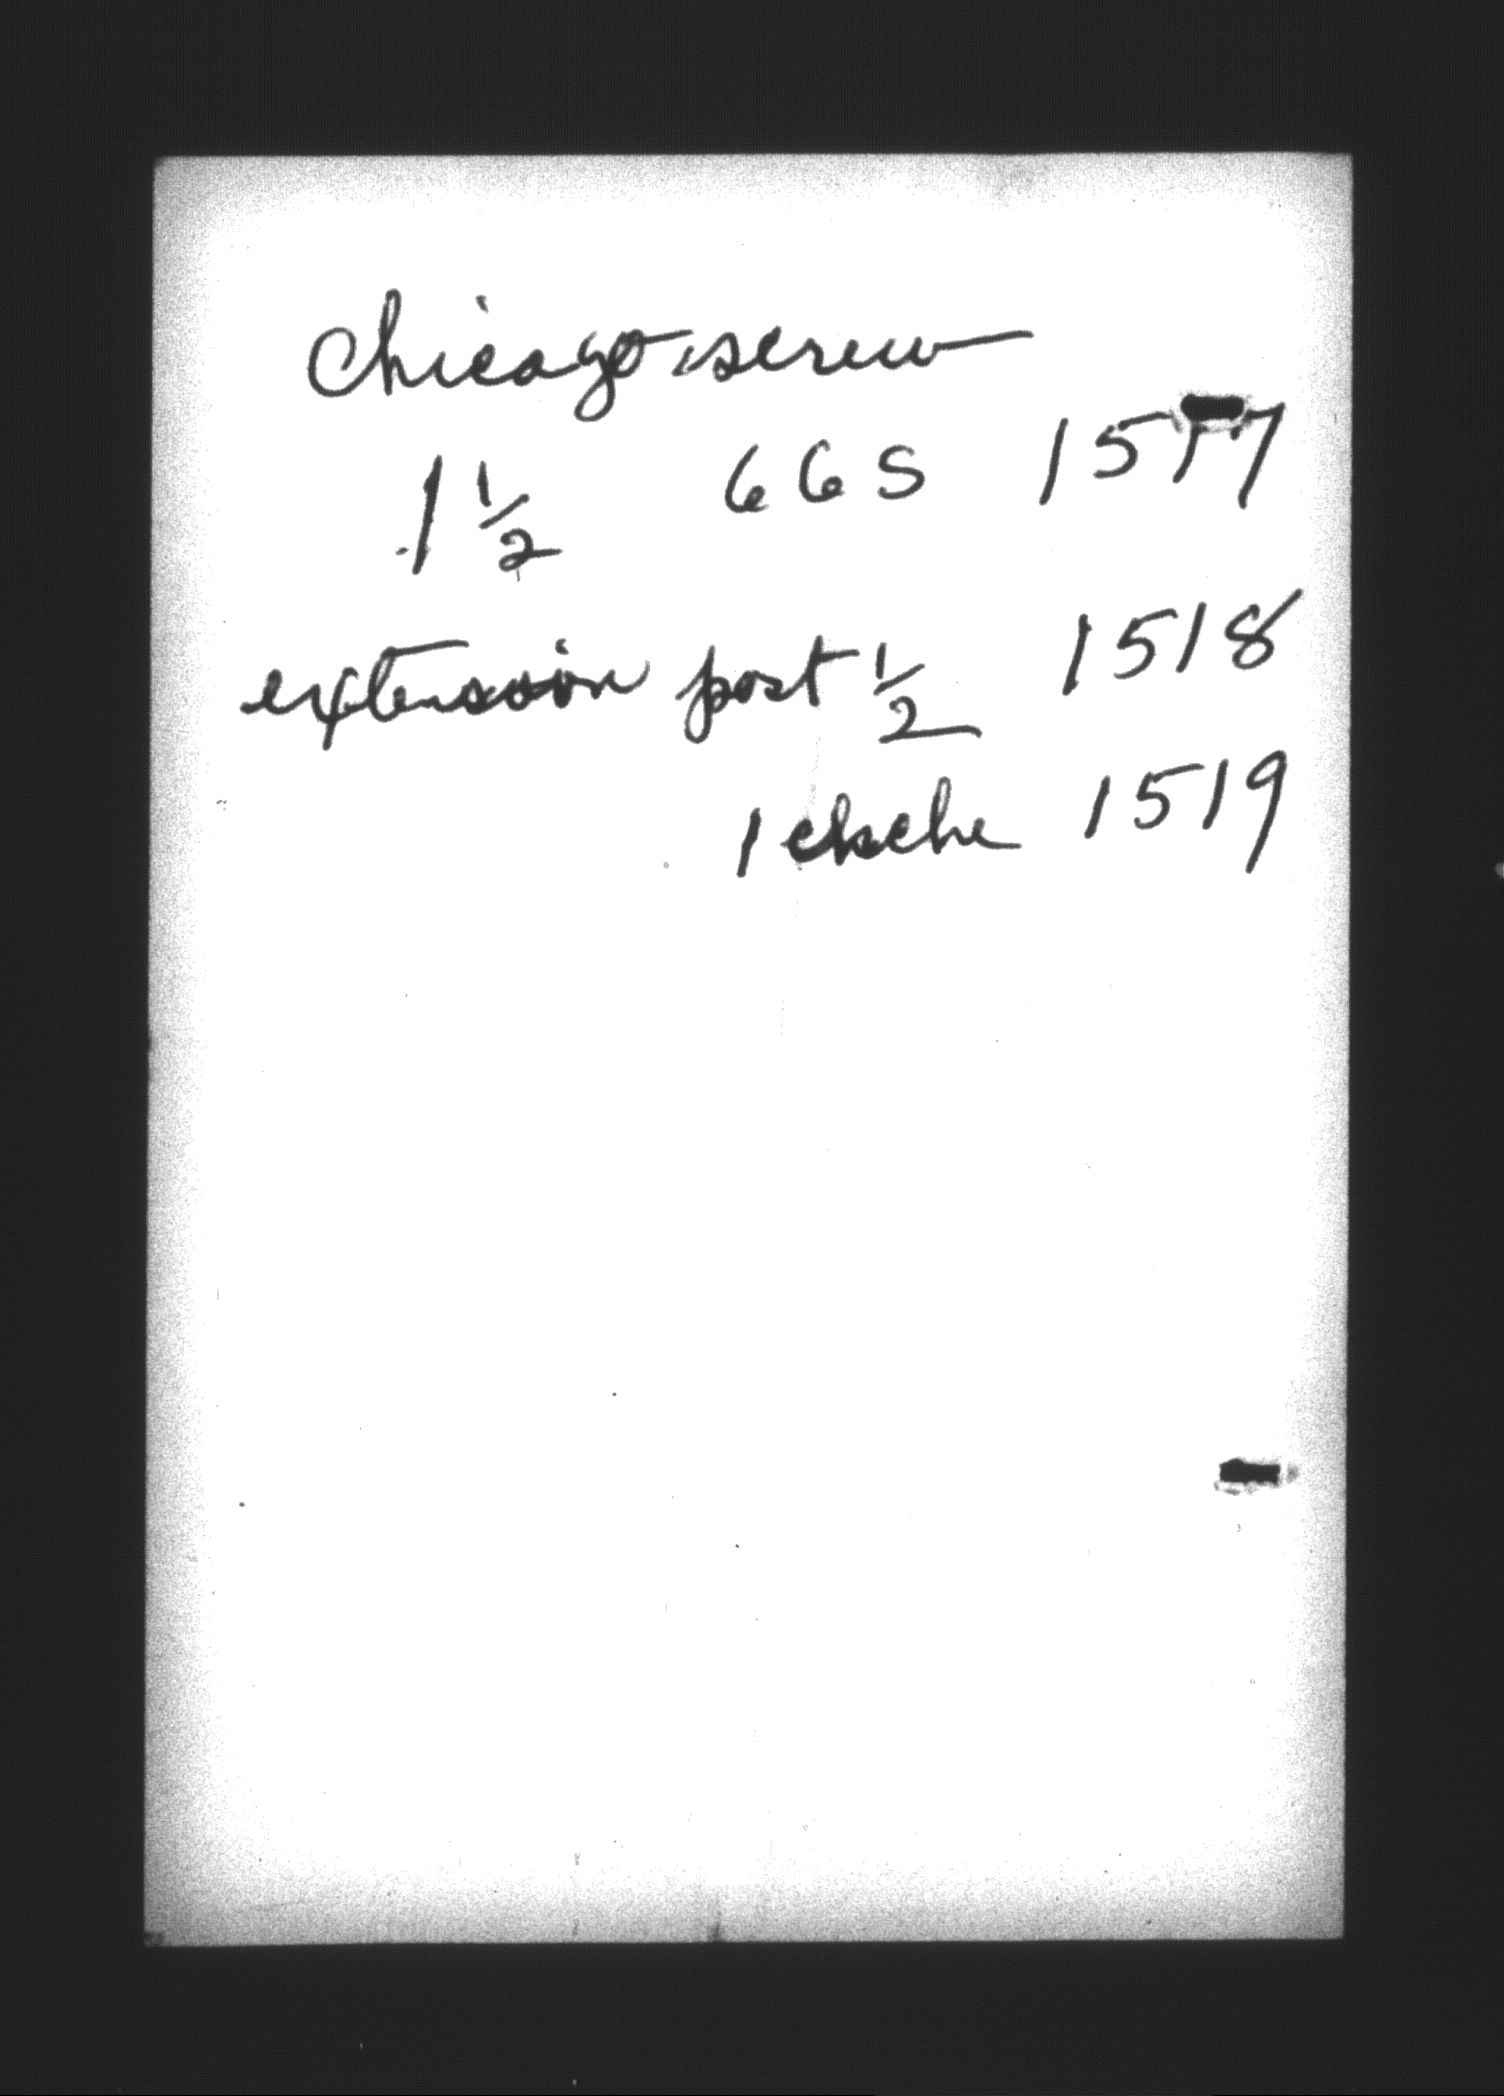 Chicago screw
1 1/2 66S 1517
extension post 1/2 1518
1 1519